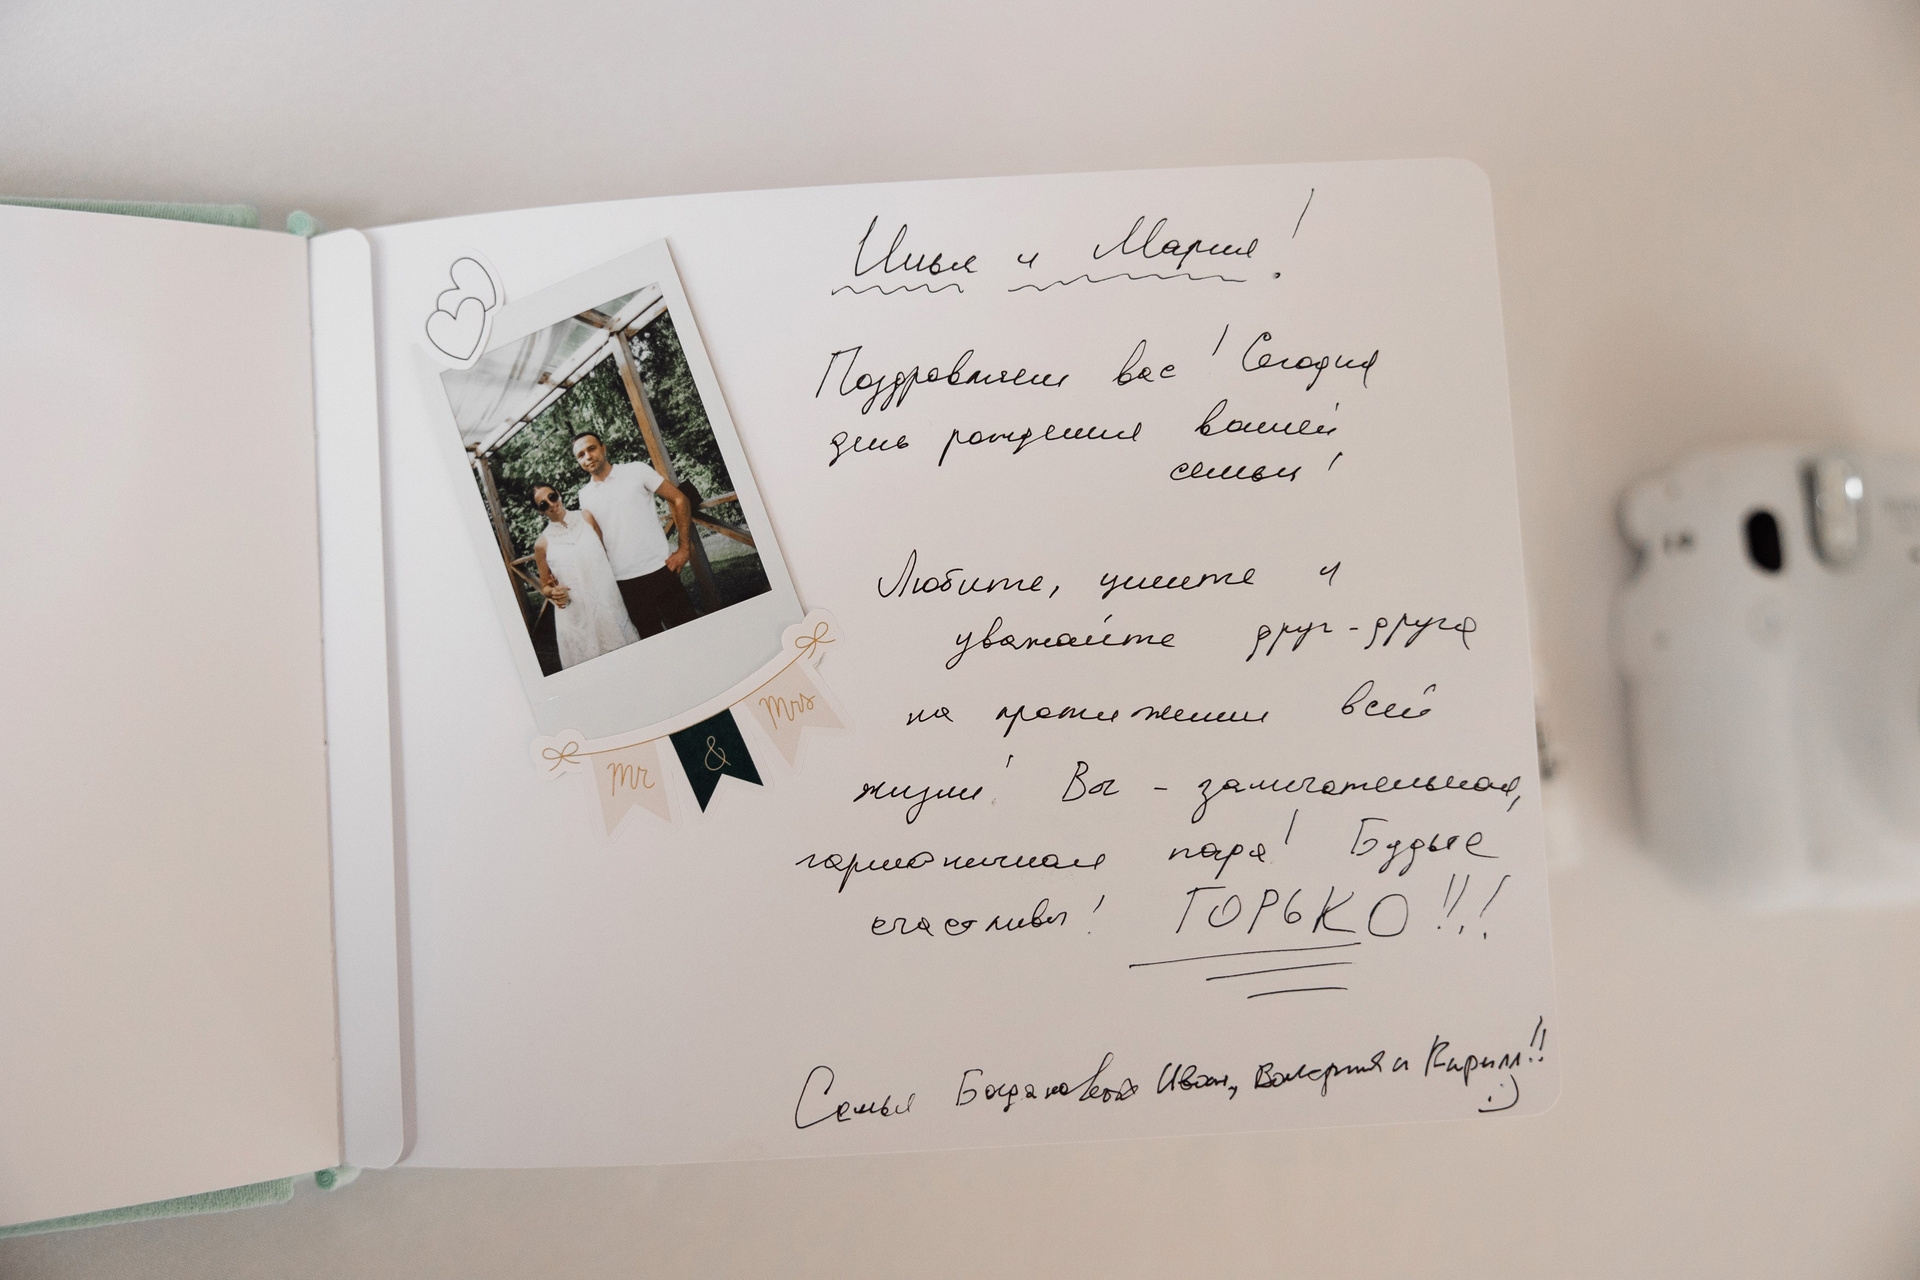 Илья и Мария!
Поздравляем вас! Сегодня
день рождения вашей
семьи!
Любите, цените и
уважайте друг-друга
на протяжении всей
жизни! Вы - замечательная,
гармоничная пара! Будьте
счастливы! ГОРЬКО!!!
Семья Иван, Валерия и Кирилл!! :)
Mr & Mrs